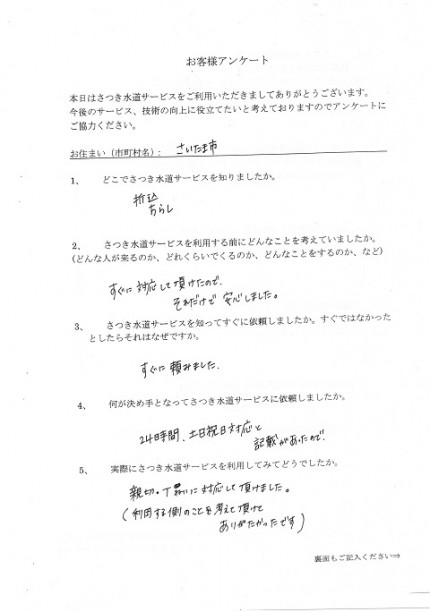 お客様アンケート
本日はさつき水道サービスをご利用いただきましてありがとうございます。
今後のサービス、技術の向上に役立てたいと考えておりますのでアンケートに
ご協力ください。
お住まい（市町村名）： さいたま市
1、 どこでさつき水道サービスを知りましたか。
折込
ちらし
2、 さつき水道サービスを利用する前にどんなことを考えていましたか。
（どんな人が来るのか、どれくらいでくるのか、どんなことをするのか、など）
すぐに対応して頂けたので、
それだけで安心しました。
3、 さつき水道サービスを知ってすぐに依頼しましたか。すぐではなかった
としたらそれはなぜですか。
すぐに頼みました。
4、 何が決め手となってさつき水道サービスに依頼しましたか。
24時間、土日祝日対応と
記載があったので。
5、 実際にさつき水道サービスを利用してみてどうでしたか。
親切・丁寧に対応して頂けました。
（利用する側のことを考えて頂けて
ありがたかったです）
裏面もご記入ください⇒